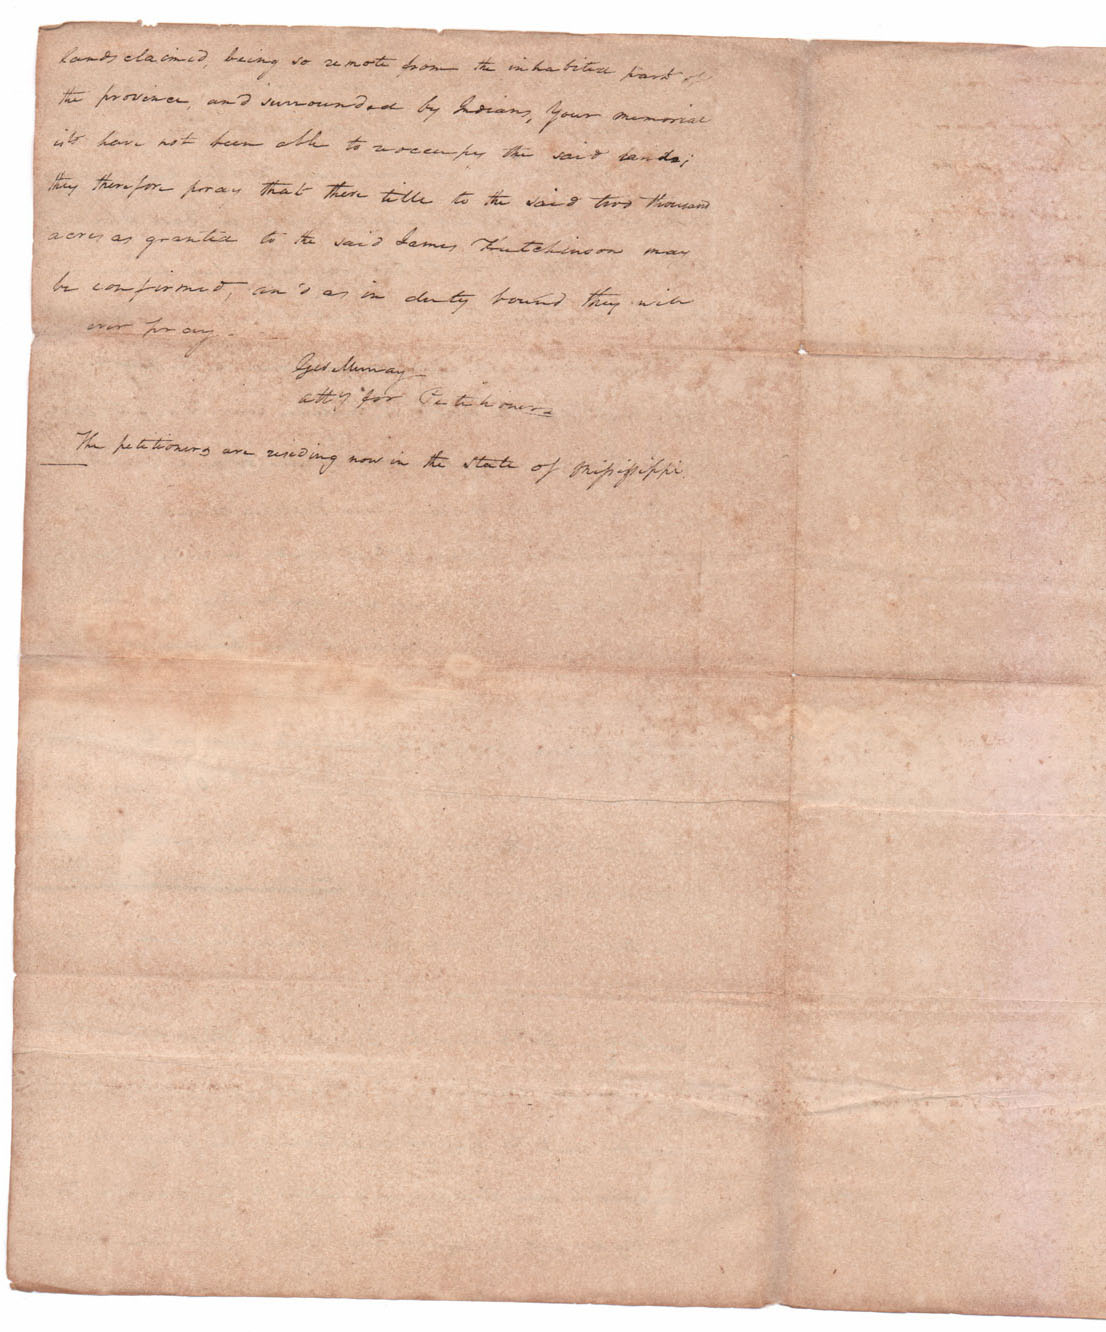 lands claimed, being so remote from the inhabited part of
the province, and surrounded by Indians, Your memorial
ists have not been able to reoccupy the said lands;
they therefore pray that there title to the said two thousand
acres as granted to the said James Hutchinson may
be confirmed, and as in duty bound they will
ever pray.
Geo Murray
atty for Petitioners
The petitioners are residing now in the State of Mississippi.